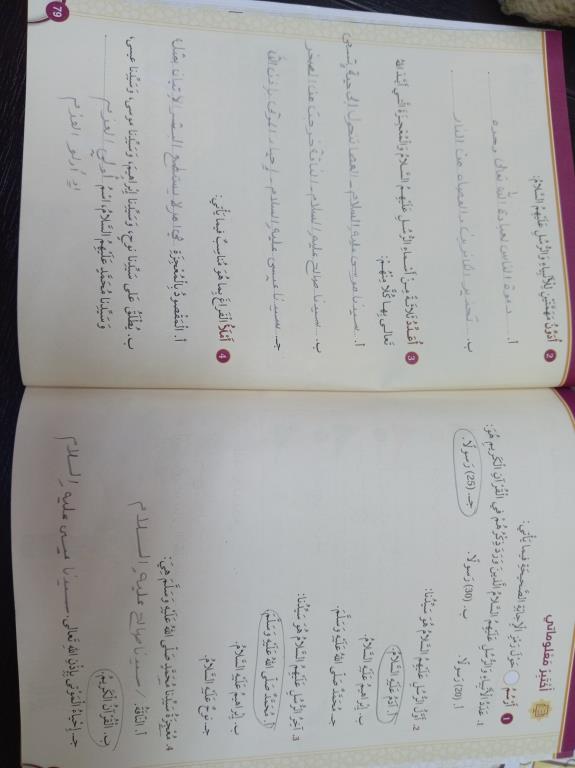 أختبر معلوماتي
1 أرسم حول رمز الإجابة الصحيحة فيما يأتي:
1. عدد الأنبياء والرسل عليهم السلام الذين ورد ذكرهم في القرآن الكريم هو:
أ. (20) رسولا. ب. (30) رسولا. جـ. (25) رسولا.
2. أول الرسل عليهم السلام هو سيدنا:
أ. آدم عليه السلام.
ب. إبراهيم عليه السلام.
جـ. محمد صلى الله عليه وسلم.
3. آخر الرسل عليهم السلام هو سيدنا:
أ. محمد صلى الله عليه وسلم.
ب. إبراهيم عليه السلام.
جـ. نوح عليه السلام.
4. معجزة سيدنا محمد صلى الله عليه وسلم هي:
أ. الناقة. / سيدنا صالح عليه السلام
ب. القرآن الكريم.
جـ. إحياء الموتى بإذن الله تعالى. سيدنا عيسى عليه السلام
2 أدون مهمتين للأنبياء والرسل عليهم السلام:
أ. دعوة الناس لعبادة الله تعالى وحده
ب. تحذير الكافرين والعصاة من النار
3 أعدد ثلاثة من أسماء الرسل عليهم السلام والمعجزة التي أيد الله
تعالى بها كلا منهم:
أ. سيدنا موسى عليه السلام - العصا تتحول إلى حية تسعى
ب. سيدنا صالح عليه السلام - الناقة خرجت من الصخر
جـ. سيدنا عيسى عليه السلام - إحياء الموتى بإذن الله
4 أملأ الفراغ بما هو مناسب فيما يأتي:
أ. المقصود بالمعجزة لا يستطيع البشر الإتيان بمثله
ب. يطلق على سيدنا نوح، وسيدنا إبراهيم، وسيدنا موسى، وسيدنا عيسى،
وسيدنا محمد عليهم السلام، اسم أولي العزم
أولو العزم
79